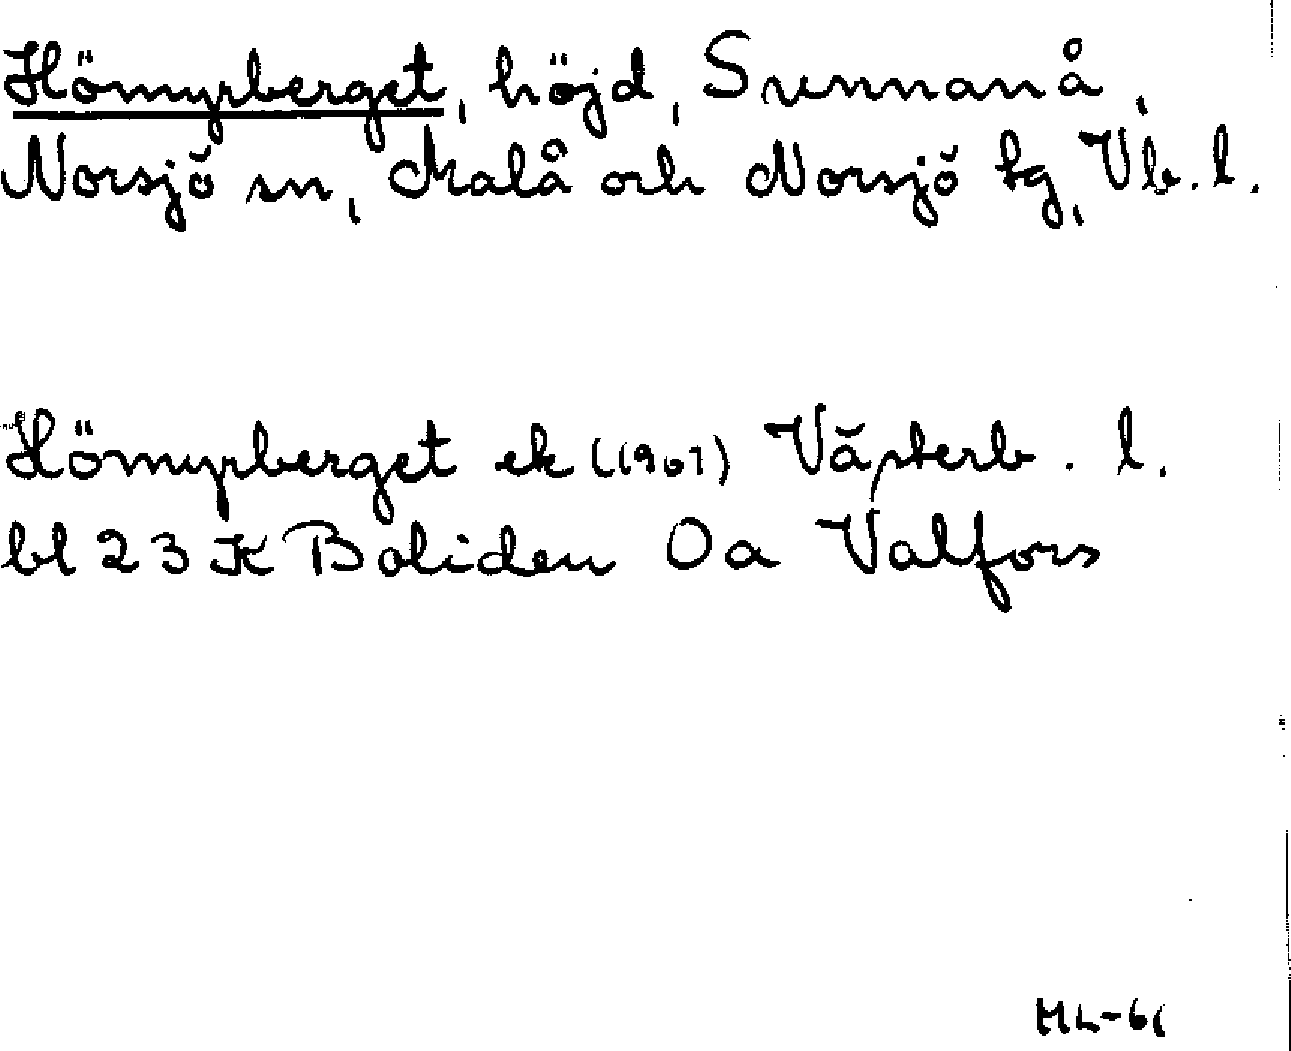 Hömyrberget, höjd, Svennanå,
Norsjö sn, Malå och Norsjö tg, Vb. l.
Hömyrberget ek (1961) Västerb. l.
bl 23 K Boliden 0a Valfors
ML-61